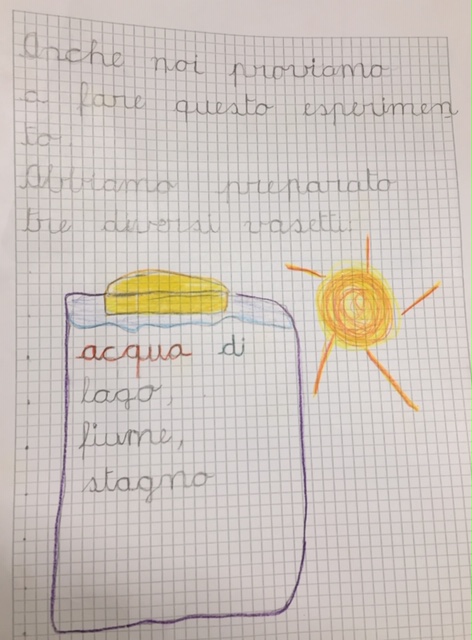 Anche noi proviamo
a fare questo esperimen
to.
Abbiamo preparato
tre diversi vasetti.
acqua di
lago,
fiume,
stagno